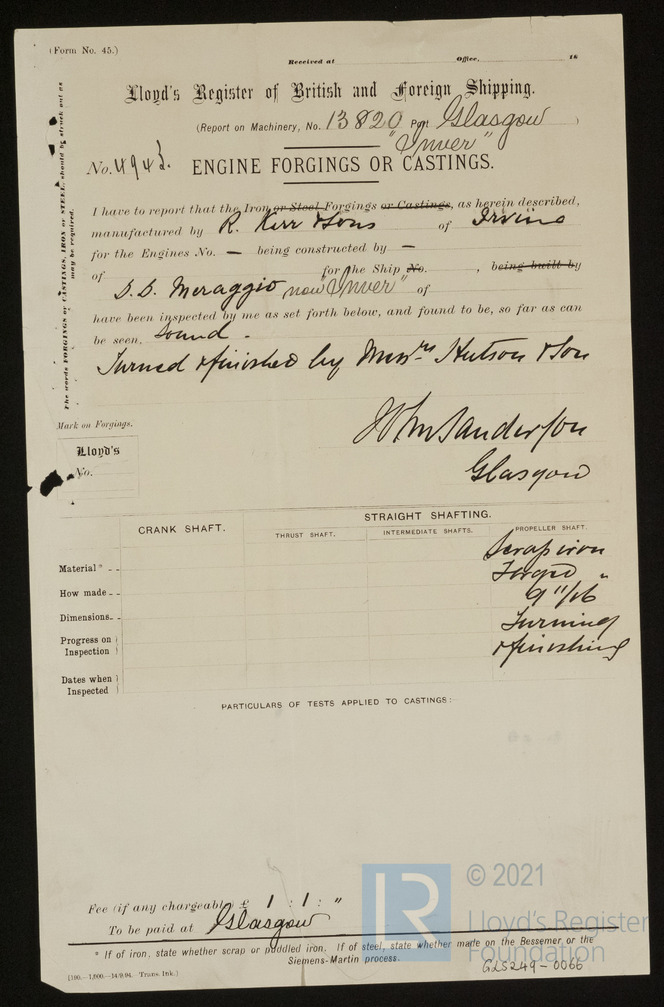 (Form No. 45.)
Received at Office, 18
Lloyd's Register of British and Foreign Shipping.
(Report on Machinery, No. 13820 Port Glasgow )
No. 4943. ENGINE FORGINGS OR CASTINGS.
I have to report that the Iron or Steel Forgings or Castings, as herein described,
manufactured by R. Kerr & Sons of Irvine
for the Engines No. — being constructed by —
of for the Ship No. , being built by
S.S. Meraggio now "Unver" of
have been inspected by me as set forth below, and found to be, so far as can
be seen, Sound.
Turned & finished by Messrs Hutson & Son
Sanderson
Glasgow
The words FORGINGS or CASTINGS, IRON or STEEL, should be struck out as
may be required.
Mark on Forgings.
Lloyd's
No.
CRANK SHAFT. STRAIGHT SHAFTING.
THRUST SHAFT. INTERMEDIATE SHAFTS. PROPELLER SHAFT.
Material* - - Scrap iron
How made - - Forged
Dimensions - - 9 11/16 "
Progress on Inspection Turning & finishing
Dates when Inspected
PARTICULARS OF TESTS APPLIED TO CASTINGS:—
Fee (if any chargeable) £ 1 : 1 : "
To be paid at Glasgow
* If of iron, state whether scrap or puddled iron. If of steel, state whether made on the Bessemer or the
Siemens-Martin process.
(100.—1,000.—14/9/94. Trans. Ink.)
GLS249-0066
LR
© 2021
Lloyd's Register
Foundation